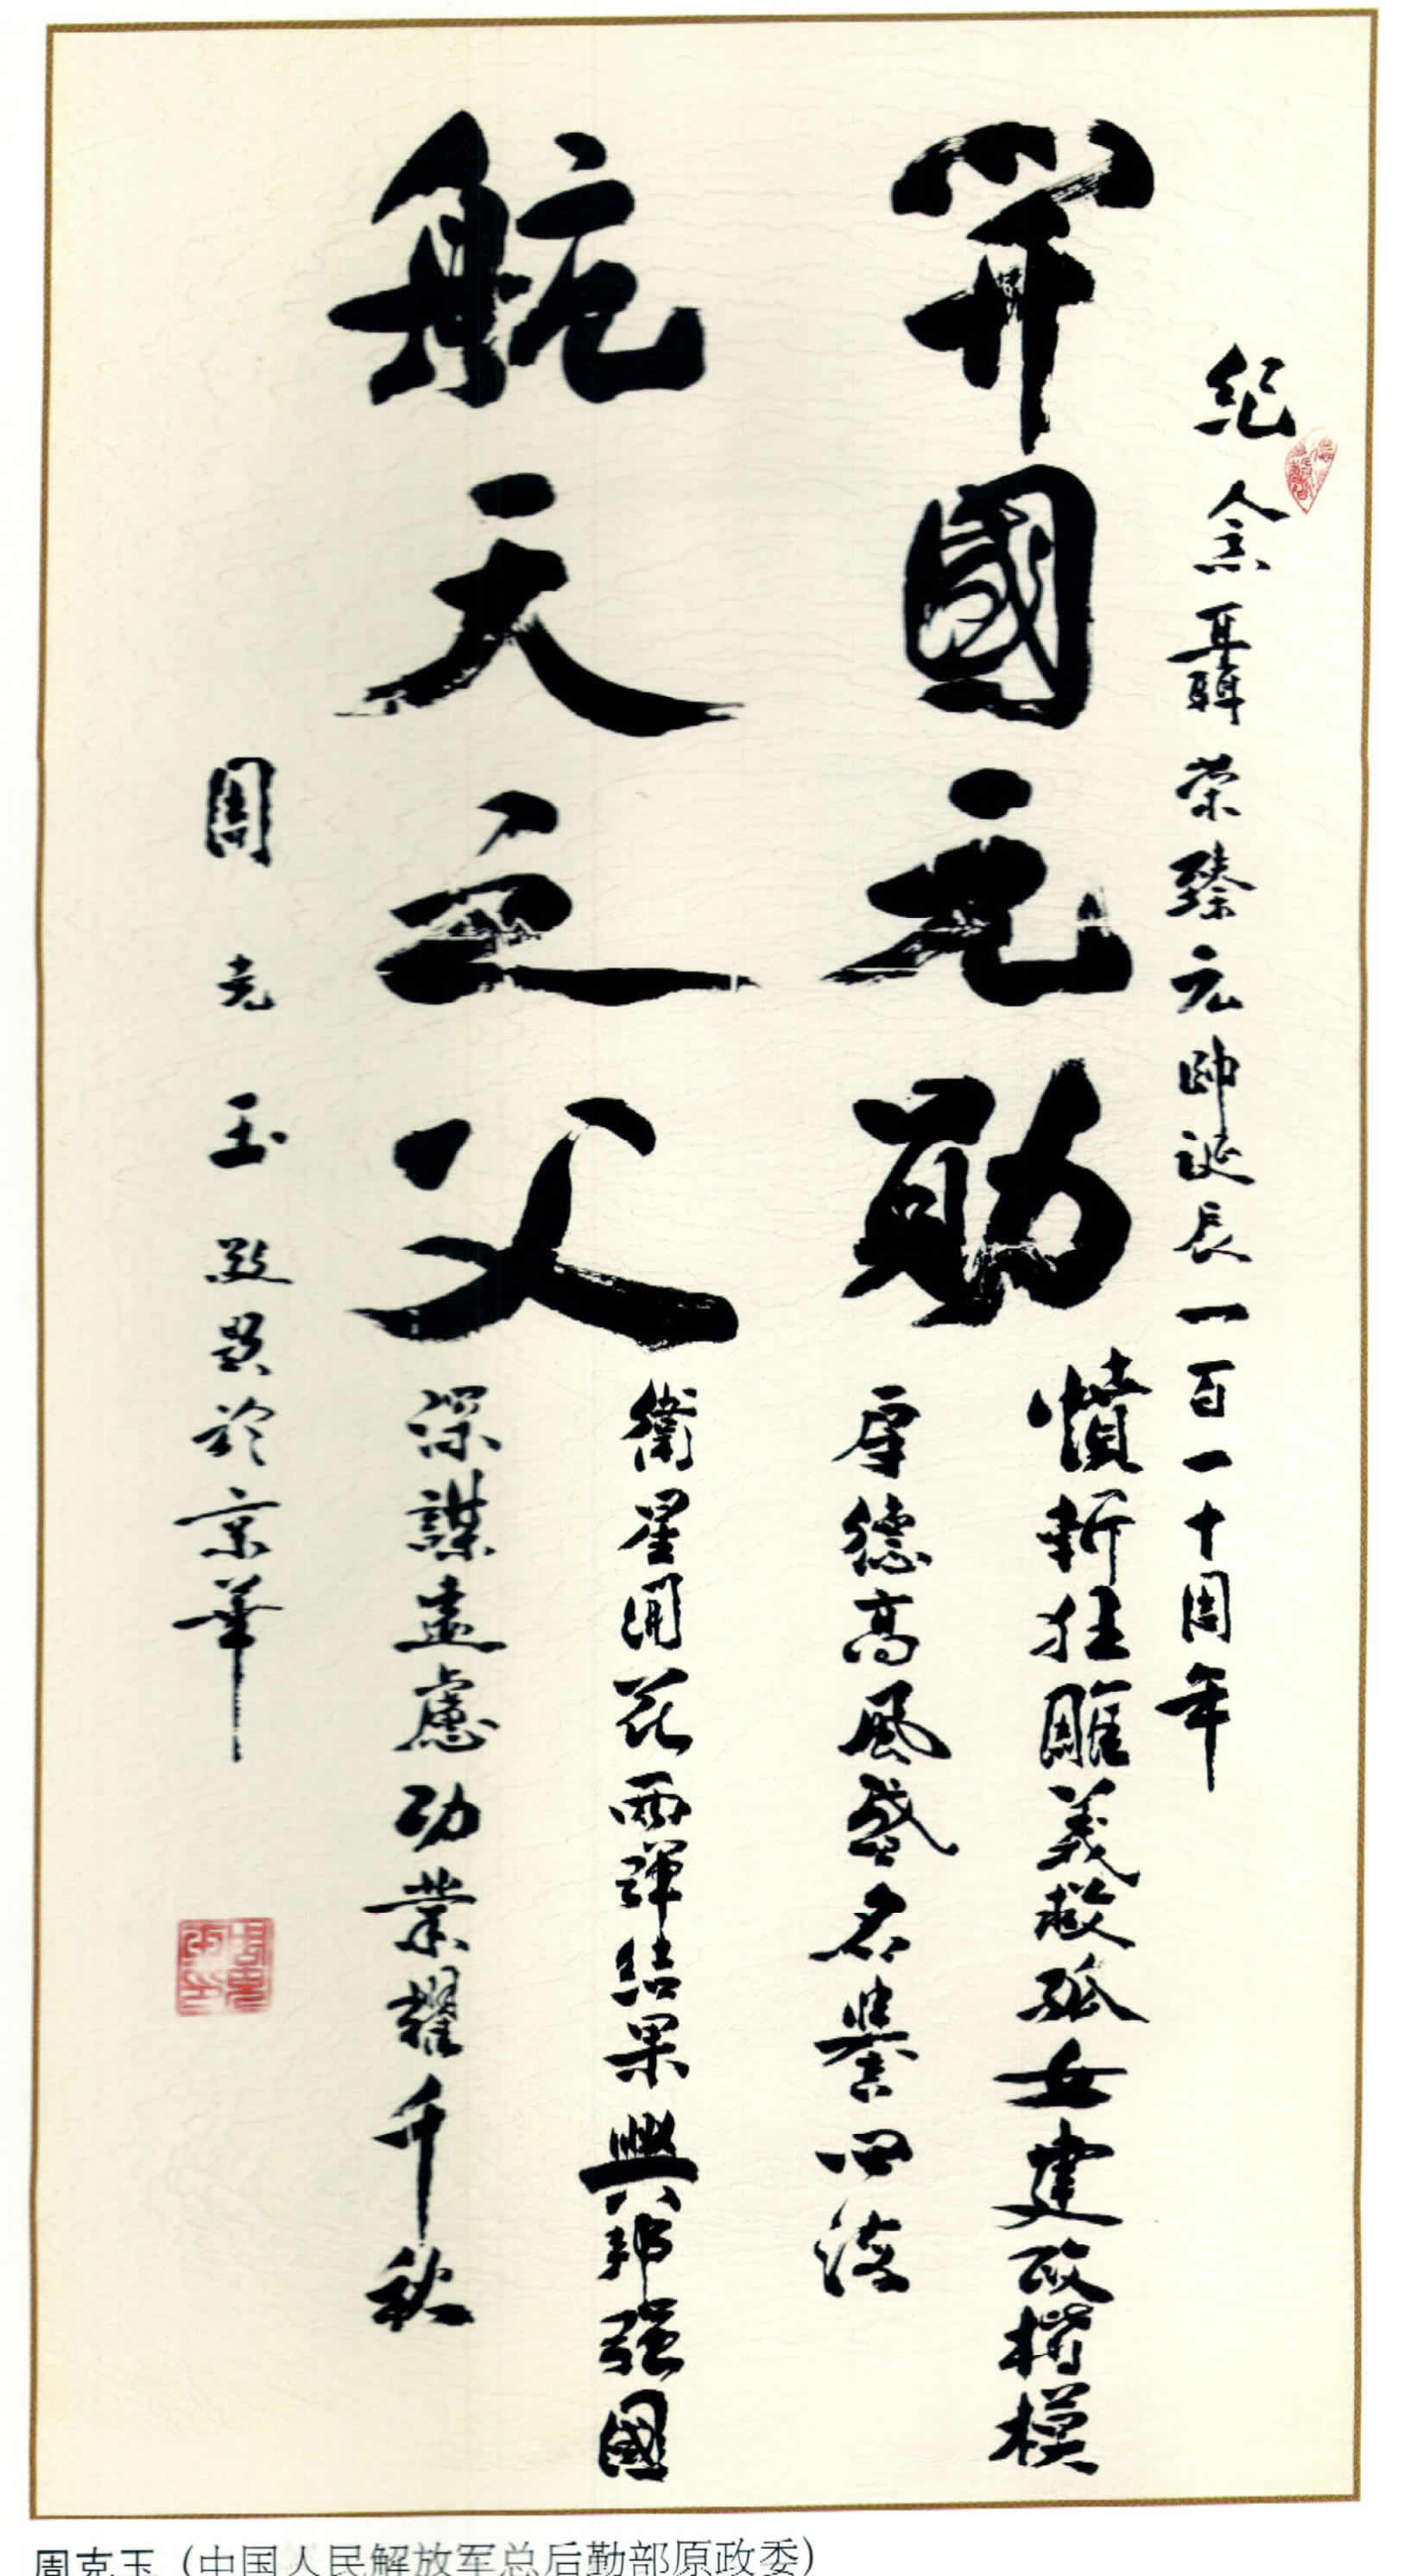 紀念聶榮臻元帥誕辰一百一十周年
開國元勛
憤斬狂雕義救孤女建政楷模
厚德高風盛名譽四海
航天之父
衛星開花兩彈結果興邦强國
深謀遠慮功業耀千秋
周克玉敬題於京華
周克玉（中国人民解放军总后勤部原政委）